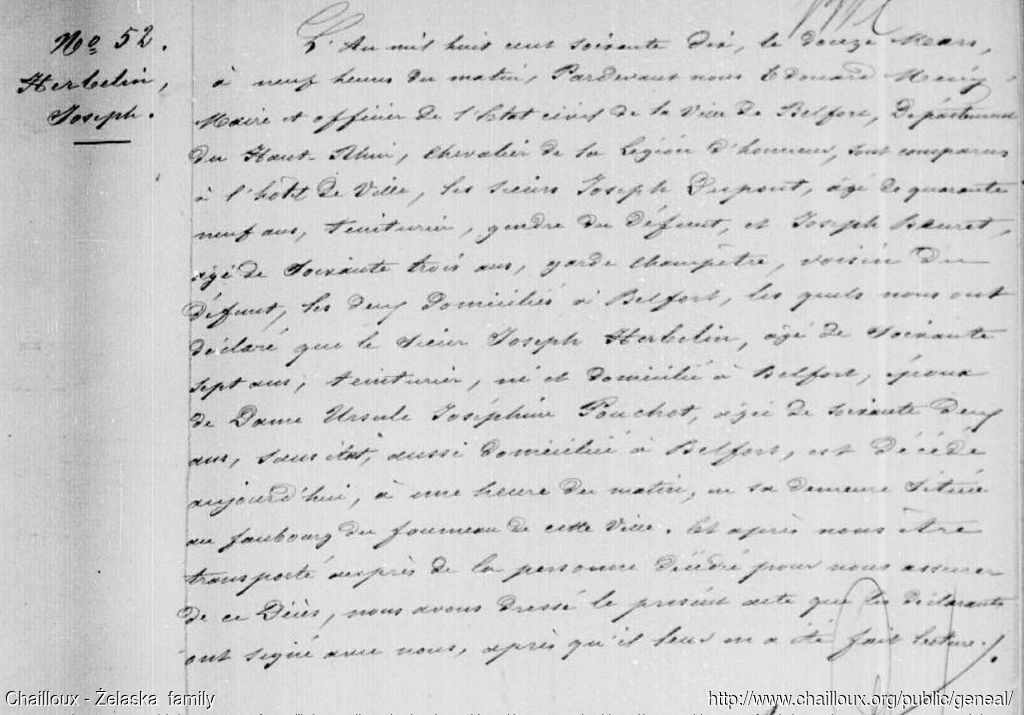 No 52.
Herbelin,
Joseph.
L'An mil huit cent soixante dix, le douze Mars,
à neuf heures du matin, Pardevant nous Edouard Mény
Maire et officier de l'Etat civil de la Ville de Belfort, Département
du Haut-Rhin, Chevalier de la Légion d'honneur, sont comparus
à l'hôtel de Ville, les sieurs Joseph Dupont, âgé de quarante
neuf ans, teinturier, gendre du défunt, et Joseph Beuret,
âgé de Soixante trois ans, garde champêtre, voisin du
défunt, les deux domiciliés à Belfort, les quels nous ont
déclaré que le sieur Joseph Herbelin, âgé de soixante
sept ans, teinturier, né et domicilié à Belfort, époux
de Dame Ursule Joséphine Pouchot, âgée de soixante deux
ans, sans état, aussi domiciliée à Belfort, est décédé
aujourd'hui, à une heure du matin, en sa demeure située
au faubourg du fourneau de cette Ville. Et après nous être
transporté auprès de la personne décédée pour nous assurer
de ce Décès, nous avons dressé le présent acte que les déclarants
ont signé avec nous, après qu'il leur en a été fait lecture./.
Chailloux - Żelaska family
http://www.chailloux.org/public/geneal/